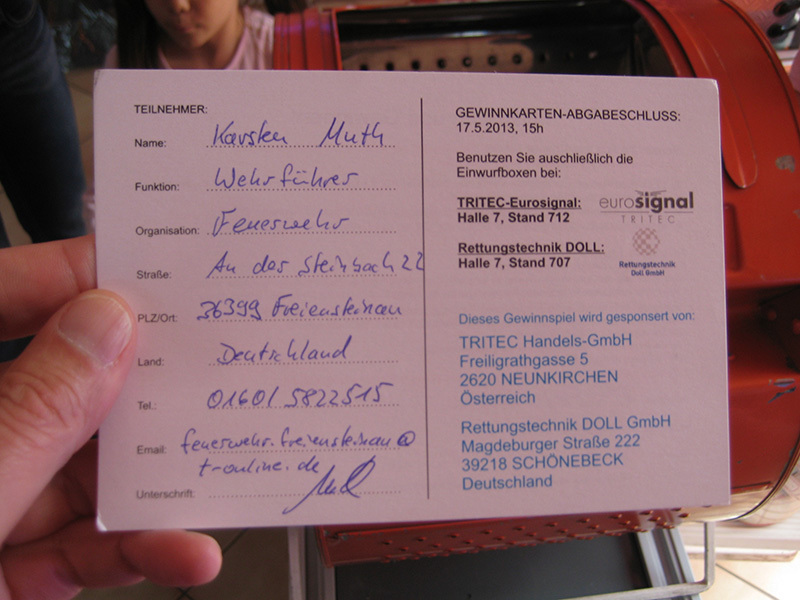 TEILNEHMER:
Name: Karsten Muth
Funktion: Wehrführer
Organisation: Feuerwehr
Straße: An der Steinbach 22
PLZ/Ort: 36399 Freiensteinau
Land: Deutschland
Tel.: 0160/5822515
Email: feuerwehr.freiensteinau@
t-online.de
Unterschrift:
GEWINNKARTEN-ABGABESCHLUSS:
17.5.2013, 15h
Benutzen Sie auschließlich die
Einwurfboxen bei:
TRITEC-Eurosignal:
Halle 7, Stand 712
eurosignal
TRITEC
Rettungstechnik DOLL:
Halle 7, Stand 707
Rettungstechnik
Doll GmbH
Dieses Gewinnspiel wird gesponsert von:
TRITEC Handels-GmbH
Freiligrathgasse 5
2620 NEUNKIRCHEN
Österreich
Rettungstechnik DOLL GmbH
Magdeburger Straße 222
39218 SCHÖNEBECK
Deutschland